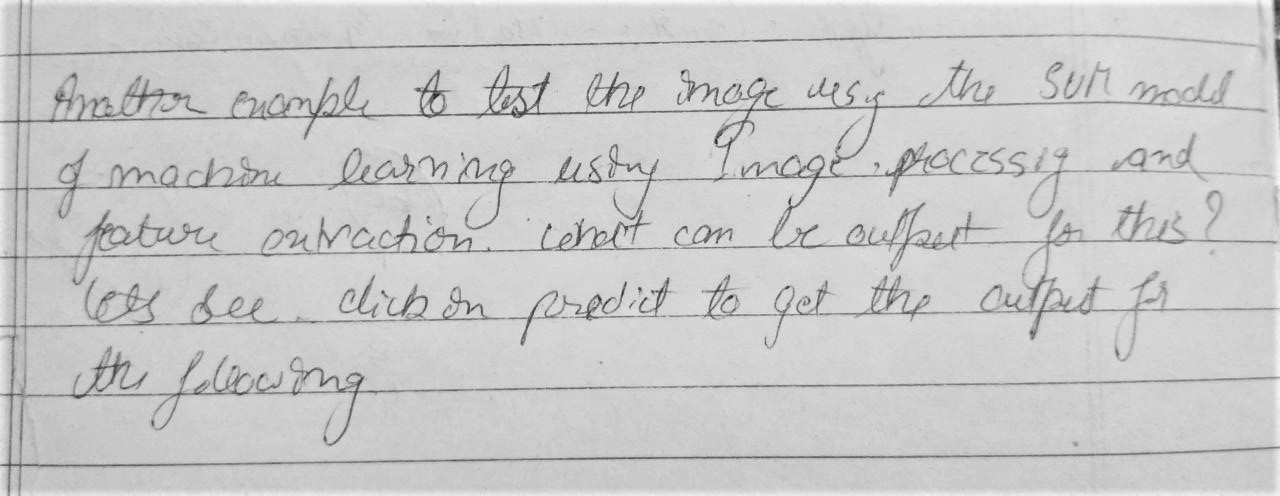 Another example to test the image using the SVM model
of machine learning using Image processig and
feature extraction. what can be output for this?
lets see. click on predict to get the output for
the following